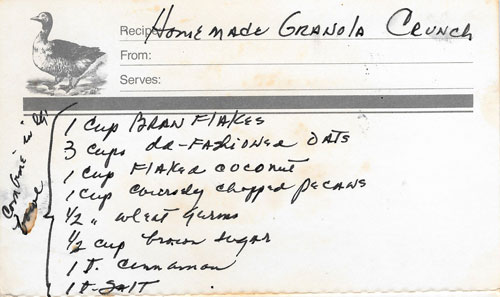 Recipe: Homemade Granola Crunch
From:
Serves:
Combine in lg. bowl
1 cup Bran Flakes
3 cups old-fashioned oats
1 cup flaked coconut
1 cup coarsely chopped pecans
1/2 " wheat germs
1/2 cup brown sugar
1 t. cinnamon
1 t. salt